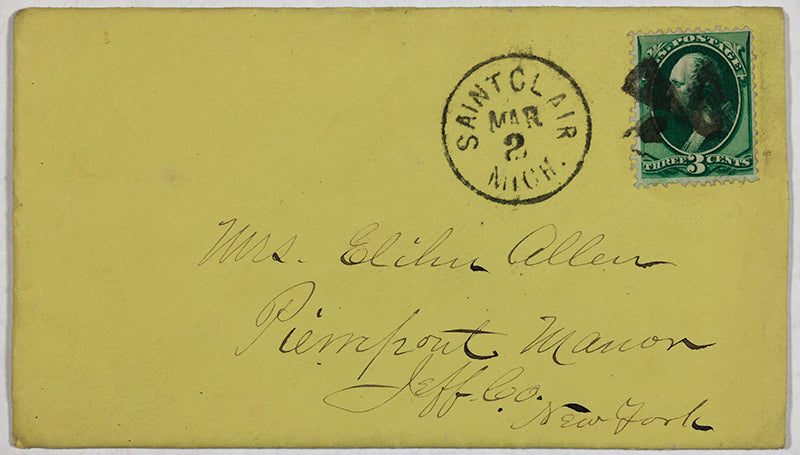 SAINT CLAIR
MAR
2
MICH.
U.S. POSTAGE
THREE 3 CENTS
Mrs. Elihu Allen
Pierrepont Manor
Jeff. Co.
New York